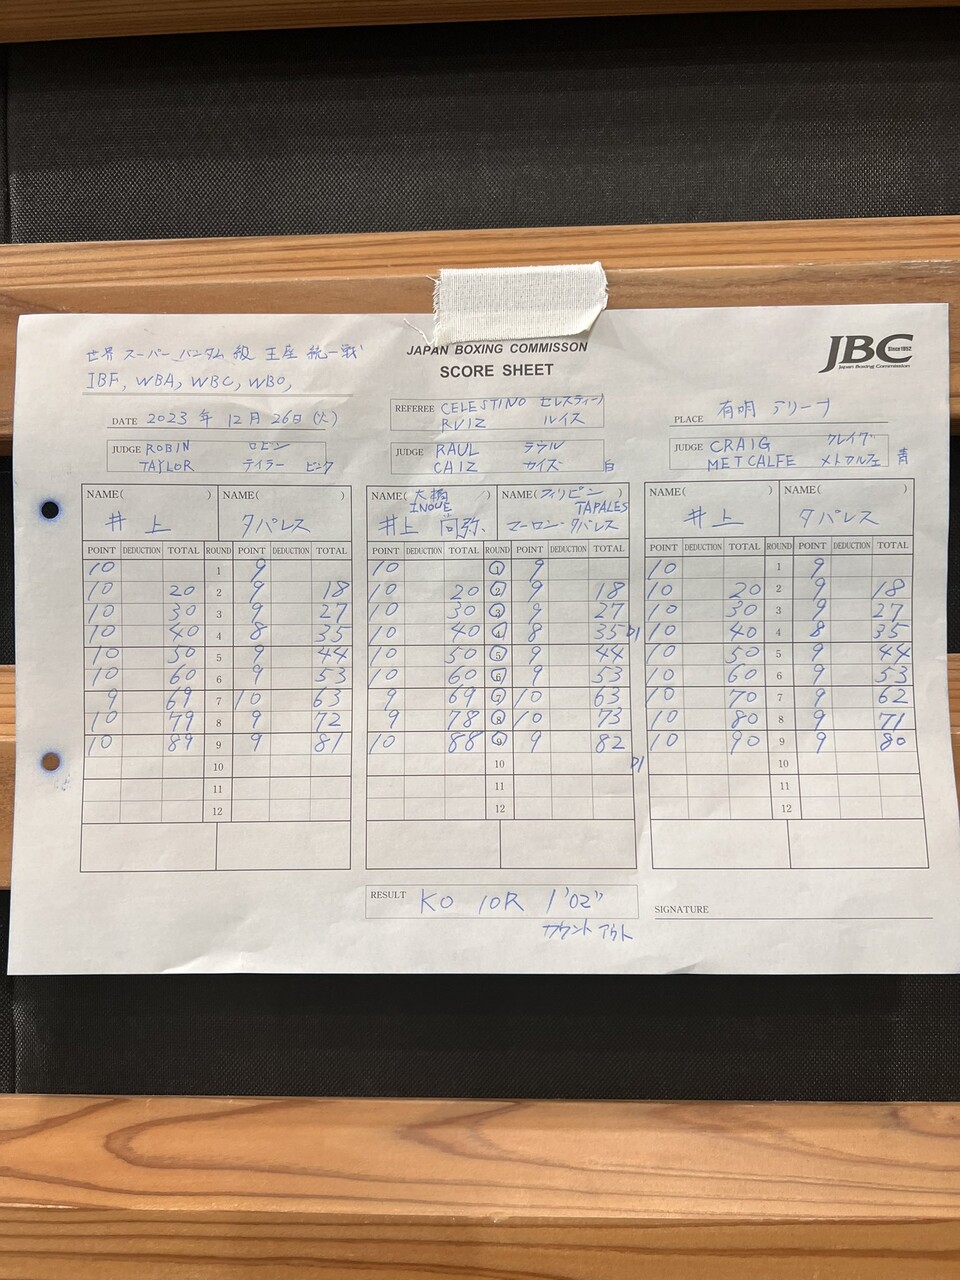 世界 スーパーバンタム級 王座統一戦
IBF, WBA, WBC, WBO,
JAPAN BOXING COMMISSON
SCORE SHEET
JBC Since1952
Japan Boxing Commission
DATE 2023年 12月 26日(火)
REFEREE CELESTINO セレスティーノ
RUIZ ルイス
PLACE 有明アリーナ
JUDGE ROBIN ロビン
TAYLOR テイラー ピンク
JUDGE RAUL ラウル
CAIZ カイズ 白
JUDGE CRAIG クレイグ
METCALFE メトカルフェ 青
NAME( ) NAME( ) NAME(大橋 ) NAME(フィリピン ) NAME( ) NAME( )
INOUE TAPALES
井上 タパレス 井上 尚弥 マーロン・タパレス 井上 タパレス
POINT DEDUCTION TOTAL ROUND POINT DEDUCTION TOTAL POINT DEDUCTION TOTAL ROUND POINT DEDUCTION TOTAL POINT DEDUCTION TOTAL ROUND POINT DEDUCTION TOTAL
10 1 9 10 1 9 10 1 9
10 20 2 9 18 10 20 2 9 18 10 20 2 9 18
10 30 3 9 27 10 30 3 9 27 10 30 3 9 27
10 40 4 8 35 10 40 4 8 35 D1 10 40 4 8 35
10 50 5 9 44 10 50 5 9 44 10 50 5 9 44
10 60 6 9 53 10 60 6 9 53 10 60 6 9 53
9 69 7 10 63 9 69 7 10 63 10 70 7 9 62
10 79 8 9 72 9 78 8 10 73 10 80 8 9 71
10 89 9 9 81 10 88 9 9 82 10 90 9 9 80
10 10 D1 10
11 11 11
12 12 12
RESULT KO 10R 1'02"
カウントアウト
SIGNATURE